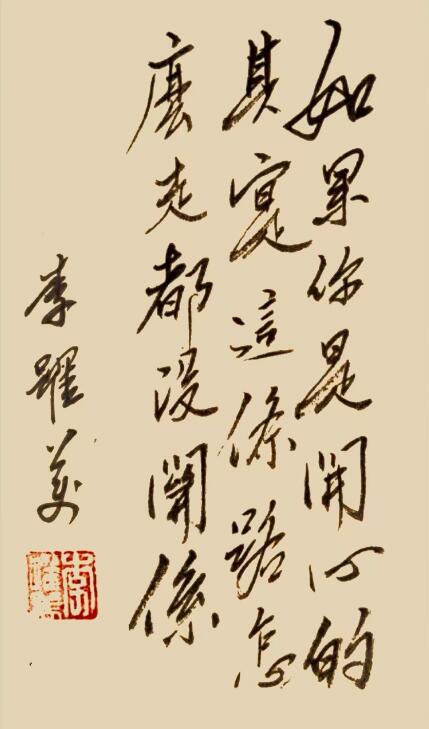 如果你是開心的
其寔這條路怎
麼走都沒關係
李躍